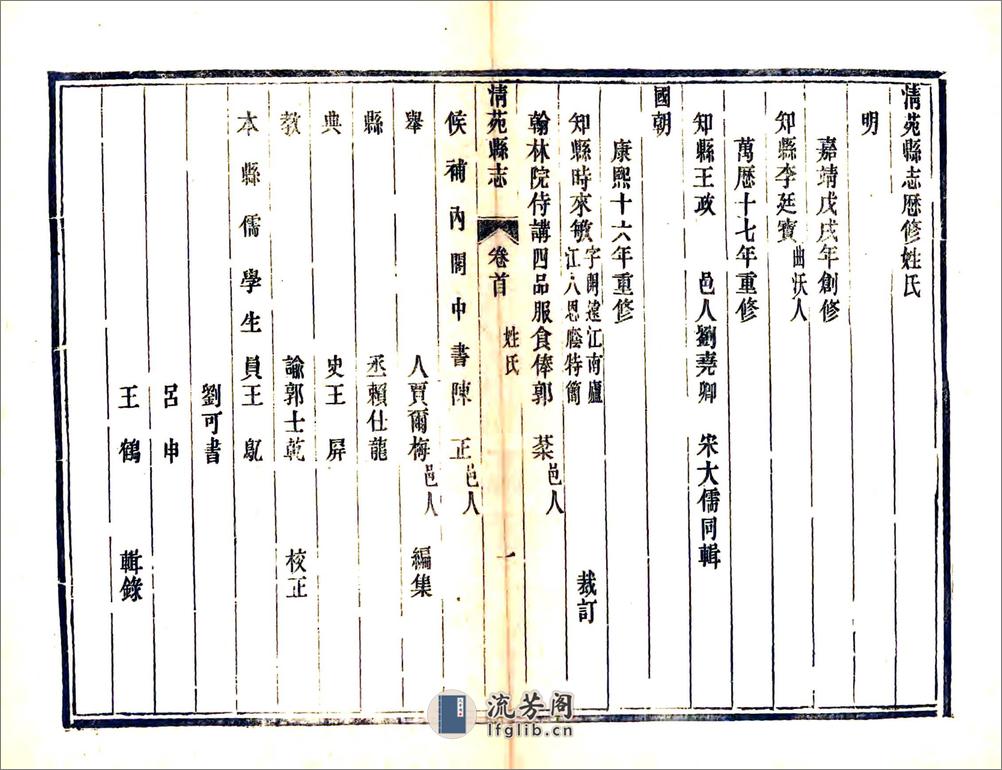 清苑縣志歷修姓氏
明
嘉靖戊戌年創修
知縣李廷寶曲沃人
萬歷十七年重修
知縣王政　邑人劉堯卿　宋大儒同輯
國朝
康熙十六年重修
知縣時來敏字開遠江南廬江人恩廕特簡　裁訂
翰林院侍講四品服食俸郭　棻邑人
清苑縣志　卷首　姓氏　一
候補內閣中書陳　正邑人
舉　人賈爾梅邑人　編集
縣　丞賴仕龍
典　史王　屏
教　諭郭士乾　校正
本縣儒學生員王　鳦
劉可書
呂申
王鶴　輯錄
流芳阁
lfglib.cn